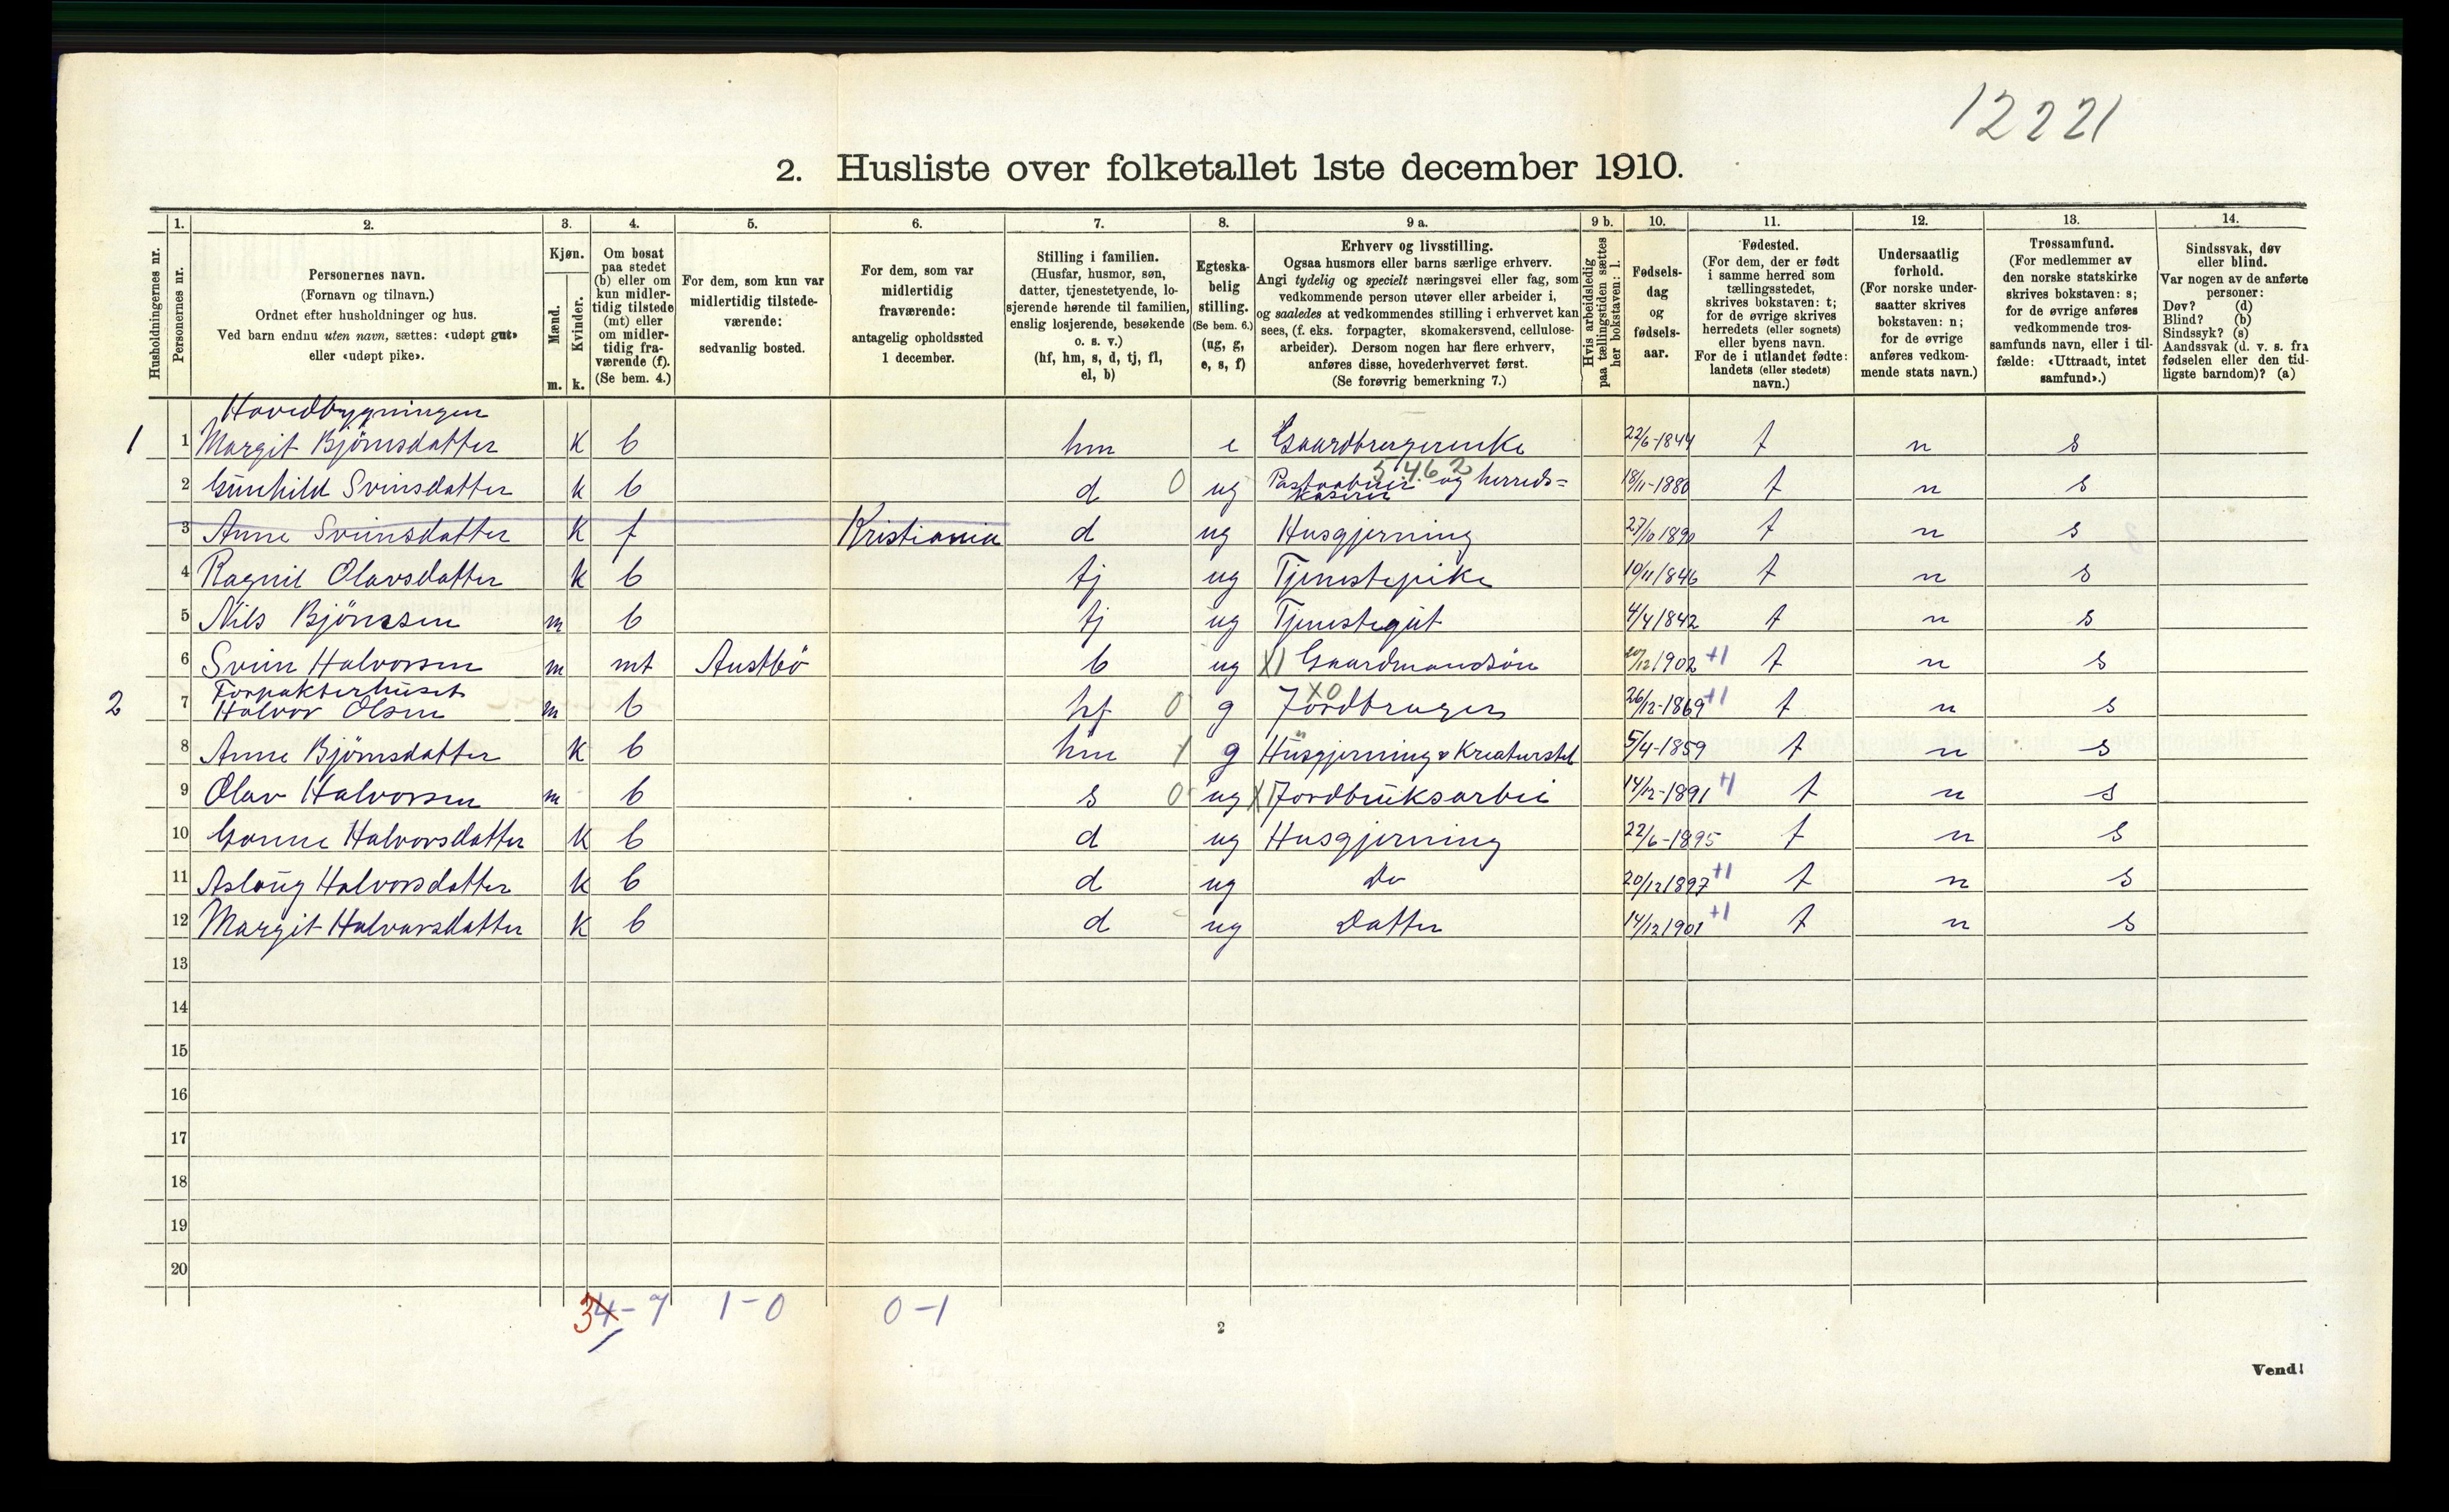 12221
2. Husliste over folketallet 1ste december 1910.
Husholdningernes nr.
1.
Personernes nr.
2.
Personernes navn.
(Fornavn og tilnavn.)
Ordnet efter husholdninger og hus.
Ved barn endnu uten navn, sættes: «udøpt gut»
eller «udøpt pike».
3.
Kjøn.
Mænd.
Kvinder.
m. k.
4.
Om bosat
paa stedet
(b) eller om
kun midler-
tidig tilstede
(mt) eller
om midler-
tidig fra-
værende (f).
(Se bem. 4.)
5.
For dem, som kun var
midlertidig tilstede-
værende:
sedvanlig bosted.
6.
For dem, som var
midlertidig
fraværende:
antagelig opholdssted
1 december.
7.
Stilling i familien.
(Husfar, husmor, søn,
datter, tjenestetyende, lo-
sjerende hørende til familien,
enslig losjerende, besøkende
o. s. v.)
(hf, hm, s, d, tj, fl,
el, b)
8.
Egteska-
belig
stilling.
(Se bem. 6.)
(ug, g,
e, s, f)
9 a.
Erhverv og livsstilling.
Ogsaa husmors eller barns særlige erhverv.
Angi tydelig og specielt næringsvei eller fag, som
vedkommende person utøver eller arbeider i,
og saaledes at vedkommendes stilling i erhvervet kan
sees, (f. eks. forpagter, skomakersvend, cellulose-
arbeider). Dersom nogen har flere erhverv,
anføres disse, hovederhvervet først.
(Se forøvrig bemerkning 7.)
9 b.
Hvis arbeidsledig
paa tællingstiden sættes
her bokstaven: l.
10.
Fødsels-
dag
og
fødsels-
aar.
11.
Fødested.
(For dem, der er født
i samme herred som
tællingsstedet,
skrives bokstaven: t;
for de øvrige skrives
herredets (eller sognets)
eller byens navn.
For de i utlandet fødte:
landets (eller stedets)
navn.)
12.
Undersaatlig
forhold.
(For norske under-
saatter skrives
bokstaven: n;
for de øvrige
anføres vedkom-
mende stats navn.)
13.
Trossamfund.
(For medlemmer av
den norske statskirke
skrives bokstaven: s;
for de øvrige anføres
vedkommende tros-
samfunds navn, eller i til-
fælde: «Uttraadt, intet
samfund».)
14.
Sindssvak, døv
eller blind.
Var nogen av de anførte
personer:
Døv? (d)
Blind? (b)
Sindssyk? (s)
Aandssvak (d. v. s. fra
fødselen eller den tid-
ligste barndom)? (a)
Hovedbygningen
1 1 Margit Björnsdatter k b hm e Gaardbrugerenke 22/6-1844 t n s
5462
2 Gunhild Svinsdatter k b d 0 ug Postaabner og herreds=
kaserer 18/11-1880 t n s
3 Anne Svinsdatter k f Kristiania d ug Husgjerning 27/10 1890 t n s
4 Ragnil Olavsdatter k b tj ug Tjenestepike 10/11 1846 t n s
5 Nils Björnsen m b tj ug Tjenestegut 4/4 1842 t n s
6 Svein Halvorsen m mt Austbö b ug X1 Gaardmandsön 20/12 1902 +1 t n s
Forpakterhuset
2 7 Halvor Olsen m b hf 0 g X0 Jordbruger 26/12-1869 +1 t n s
8 Anne Björnsdatter k b hm 1 g Husgjerning & Kreaturstel 5/4-1859 t n s
9 Olav Halvorsen m b s 0 ug X1 Jordbruksarbei 14/12-1891 +1 t n s
10 Gonne Halvorsdatter k b d ug Husgjerning 22/6-1895 t n s
11 Aslaug Halvorsdatter k b d ug Do 20/12 1897 +1 t n s
12 Margit Halvorsdatter k b d ug Datter 14/12 1901 +1 t n s
13
14
15
16
17
18
19
20
3 4-7 1-0 0-1
2
Vend!